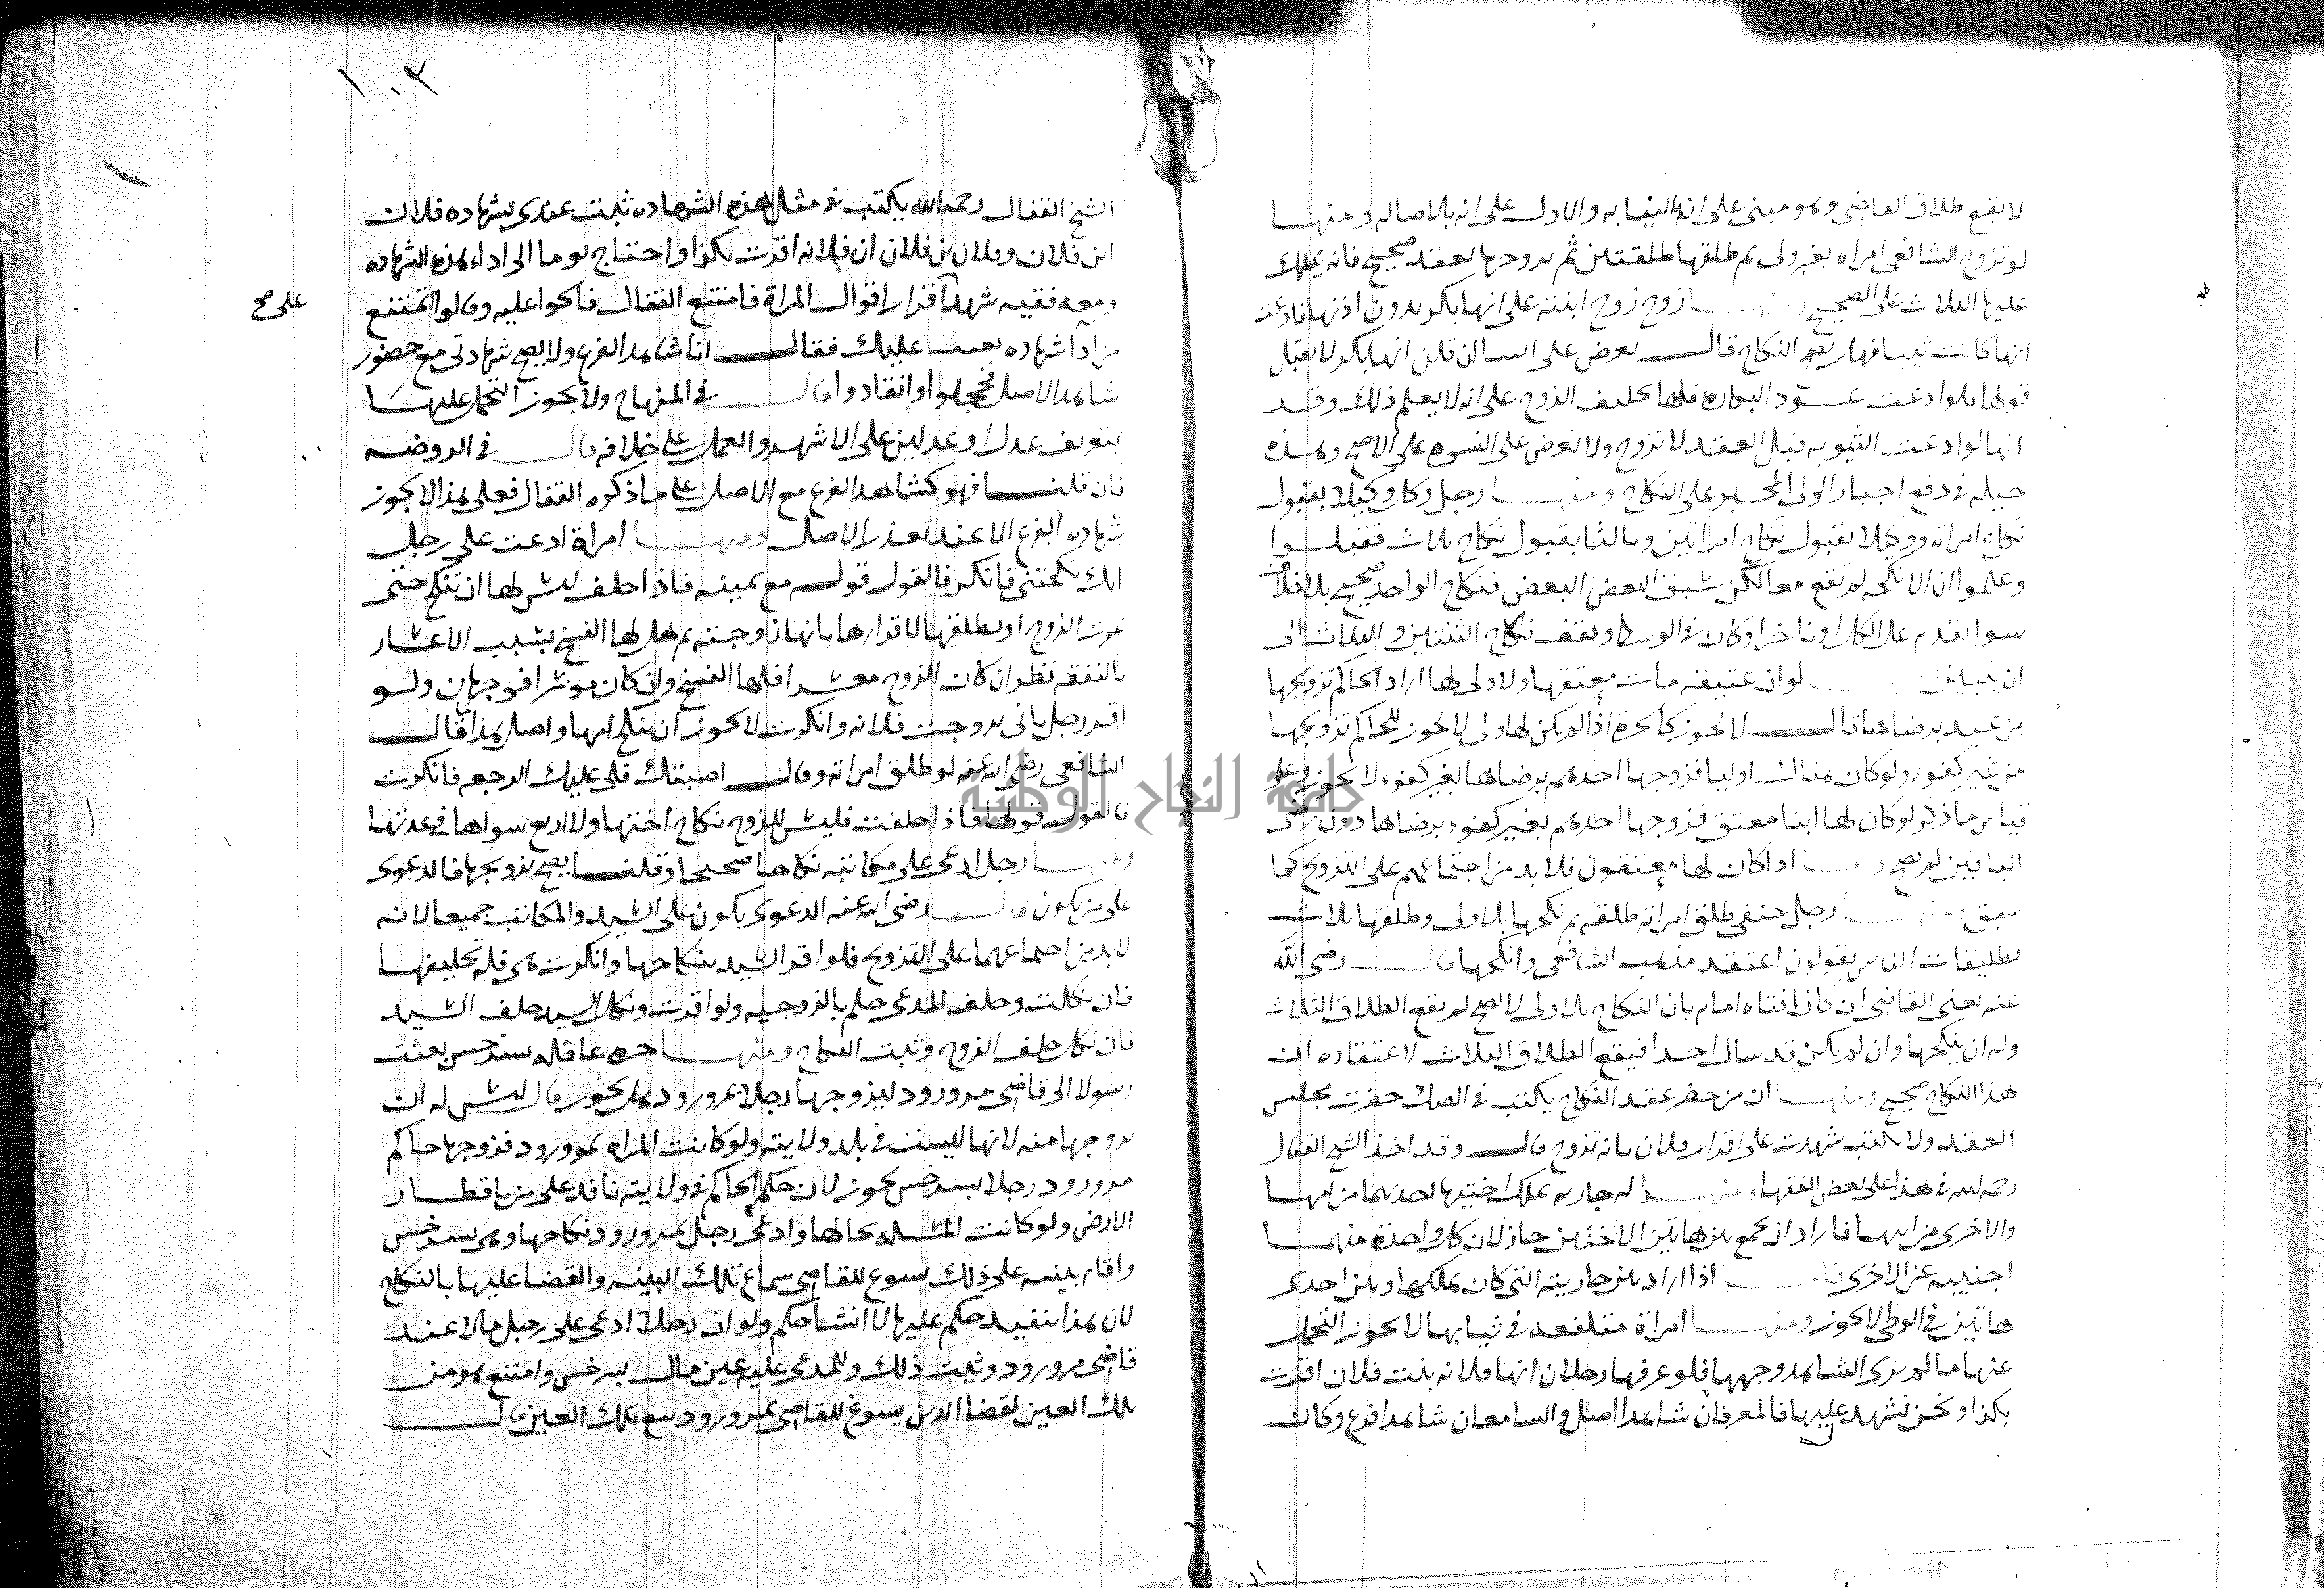 لا يقع طلاق القاضى وهو مبنى على انه بالنيابه والاول على انه بالاصاله ومنها
لو تزوج الشافعى امراه بغير ولى ثم طلقها طلقتين ثم تزوجها بعقد صحيح فانه يملك
عليها الثلاث على الصحيح ومنها زوج ابنته على انها بكر بدون اذنها فادعت
انها كانت ثيبا فهل يصح النكاح قال يعرض على النسا ان قلن انها بكر لا يقبل
قولها فلو ادعت عود البكاره فلها تحليف الزوج على انه لا يعلم ذلك وقد
انها لو ادعت الثيوبه قبل العقد لا تزوج ولا تعرض على النسوه على الاصح وهذه
حيله فى دفع اجبار الولى المجبر على النكاح ومنها رجل وكل وكيلا بقبول
نكاح امراه ووكيلا بقبول نكاح امراتين وثالثا بقبول نكاح ثلاث فقبلوا
وعلموا ان الانكحه لم تقع معا لكن سبق البعض البعض فنكاح الواحده صحيح بلا خلاف
سوا تقدم على الكل او تاخر او كان فى الوسط ويقف نكاح الثنتين والثلاث الى
ان يتبين لو ان عتيقه مات معتقها ولا ولى لها اراد الحاكم تزويجها
من عبد برضاها قال لا يجوز كالحرة اذا لم يكن لها ولى لا يجوز للحاكم تزويجها
من غير كفوء ولو كان هناك اوليا فزوجها احدهم برضاها بغير كفوء لا يجوز وعلى
قياس ما ذكر لو كان لها ابنا معتق فزوجها احدهم بغير كفوء برضاها دون رضى
الباقين لم يصح اذا كان لها معتقون فلا بد من اجتماعهم على التزويج كما
سبق رجل حنفى طلق امراته طلقه ثم نكحها بلا ولى وطلقها ثلاث
تطليقات الناس يقولون اعتقد مذهب الشافعى وانكحها قال رضى الله
عنه يعنى القاضى ان كان افتاه امام بان النكاح بلا ولى لا يصح لم يقع الطلاق الثلاث
وله ان ينكحها وان لم يكن قد سال احدا فيقع الطلاق الثلاث لاعتقاده ان
هذا النكاح صحيح ومنها ان من حضر عقد النكاح يكتب فى الصك حضرت مجلس
العقد ولا يكتب شهدت على اقرار فلان بانه تزوج قال وقد اخذ الشيخ القفال
رحمه الله فى هذا على بعض الفقها ومنها له جاريه يملك اختيها احديهما من امها
والاخرى من ابيها فاراد ان يجمع بين هاتين الاختين جاز لان كل واحدة منهما
اجنبيه عن الاخرى اذا اراد بين جاريته التى كان يملكها وبين احدى
هاتين فى الوطى لا يجوز ومنها امراة متلفعه فى ثيابها لا يجوز التحمل
عنها ما لم يرى الشاهد وجهها فلو عرفها رجلان انها فلانه بنت فلان اقرت
بكذا ونحن نشهد عليها فالمعرفان شاهدا اصل والسامعان شاهدا فرع وكان
١٠٣
الشيخ القفال رحمه الله يكتب فى مثل هذه الشهاده ثبت عندى بشهاده فلان
ابن فلان وفلان بن فلان ان فلانه اقرت بكذا واحتاج يوما الى اداء هذه الشهاده
ومعه فقيه شهدا اقرار اقوال المراة فامتنع القفال فالحوا عليه وقالوا اتمتنع
على صح
من اداء شهاده عليك فقال انا شاهد الفرع ولا يصح شهادتى مع حضور
شاهد الاصل فخجلوا وانقادوا قال فى المنهاج ولا يجوز التحمل عليها
بتعريف عدل او عدلين على الاشهر والعمل على خلافه قال فى الروضه
فان قلنا فهو كشاهد الفرع مع الاصل على ما ذكره القفال فعلى هذا لا يجوز
شهاده الفرع الا عند تعذر الاصل ومنها امراة ادعت على رجل
انك نكحتنى فانكر فالقول قوله مع يمينه فاذا حلف ليس لها ان تنكح حتى
يموت الزوج او يطلقها لاقرارها بانها زوجته ثم هل لها الفسخ بسبب الاعسار
بالنفقه نظر ان كان الزوج معسرا فلها الفسخ وان كان موسرا فوجهان ولو
اقر رجل بانى تزوجت فلانه وانكرت لا يجوز ان ينكح امها واصل هذا قال
الشافعى رضى الله عنه لو طلق امراته وقال اصبتك فلى عليك الرجعه فانكرت
فالقول قولها فاذا حلفت فليس للزوج نكاح اختها ولا اربع سواها فى عدتها
ومنها رجل ادعى على مكاتبه نكاحا صحيحا وقلنا يصح تزويجها فالدعوى
على من يكون قال رضى الله عنه الدعوى يكون على السيد والمكاتب جميعا لانه
لا بد من اجتماعهما على التزويج فلو اقر السيد بنكاحها وانكرت هى فله تحليفها
فان نكلت وحلف المدعى حكم بالزوجيه ولو اقرت ونكل السيد حلف السيد
فان نكل حلف الزوج وثبت النكاح ومنها حره عاقله بسرخس بعثت
رسولا الى قاضى مرورود ليزوجها رجلا بمرورود هل يجوز قال ليس له ان
يزوجها منه لانها ليست فى بلد ولايته ولو كانت المراه بمرورود فزوجها حاكم
مرورود رجلا بسرخس يجوز لان حكم الحاكم فى ولايته نافذ على من باقطار
الارض ولو كانت المسله بحالها وادعى رجل بمرورود نكاحها وهى بسرخس
واقام بينه على ذلك يسوغ للقاضى سماع تلك البينه والقضا عليها بالنكاح
لان هذا تنفيذ حكم عليها لا انشا حكم ولو ان رجلا ادعى على رجل مالا عند
قاضى مرورود وثبت ذلك وللمدعى عليه عين مال بسرخس وامتنع هو من
تلك العين لقضا الدين يسوغ للقاضى بمرورود بيع تلك العين قال
جامعة النجاح الوطنية